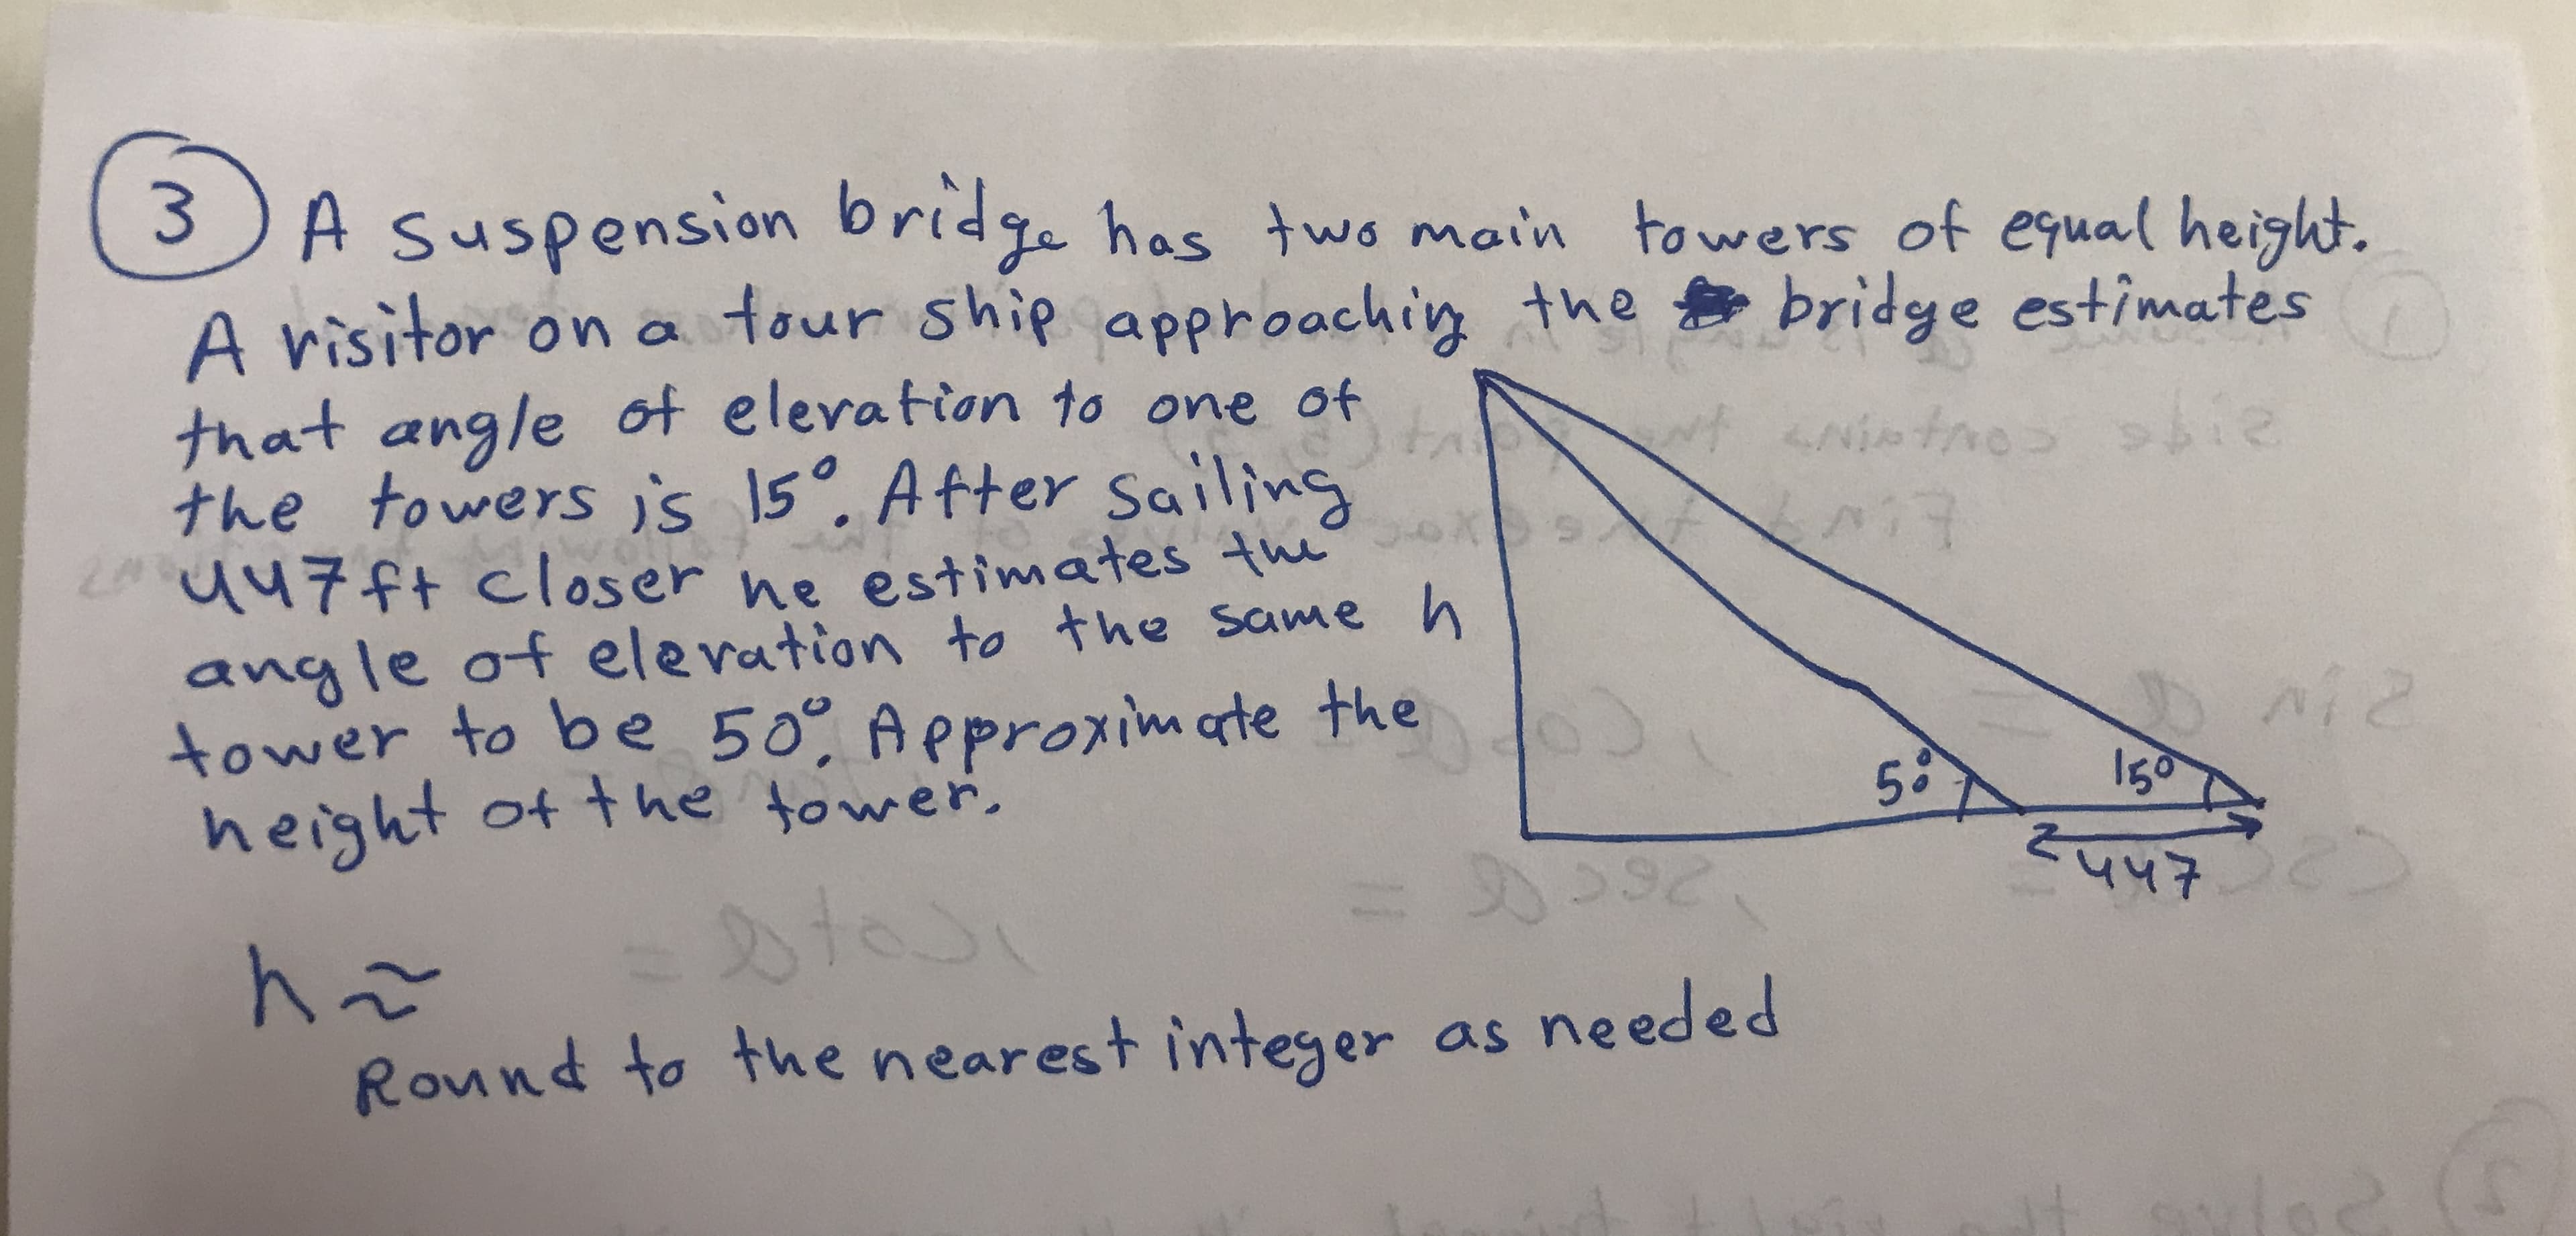 3 A suspension bridge has two main towers of equal height.
A visitor on a tour ship approaching the bridge estimates
that angle of elevation to one of
the towers is 15°. After sailing
447 ft closer he estimates the
angle of elevation to the same
tower to be 50°. Approximate the
height of the tower.
h
50°
15°
447
h ≈
Round to the nearest integer as needed